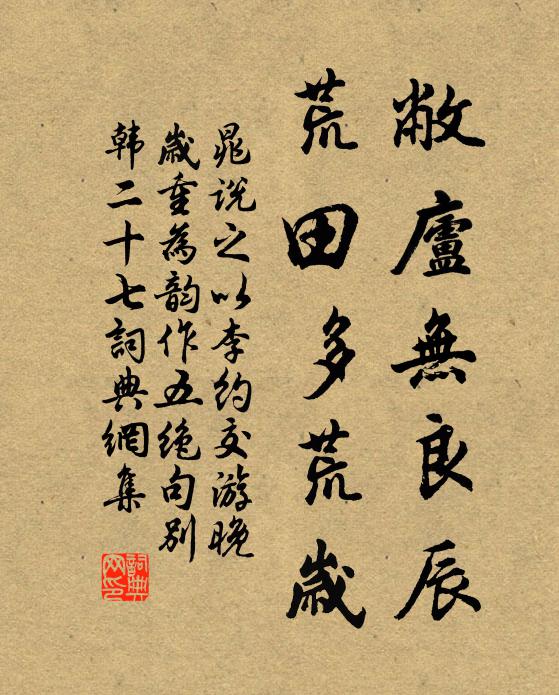 敝廬無良辰
荒田多荒歲
晁說之以李約交游晚
歲重為韵作五絕句別
韩二十七詞典網集
詞典网印